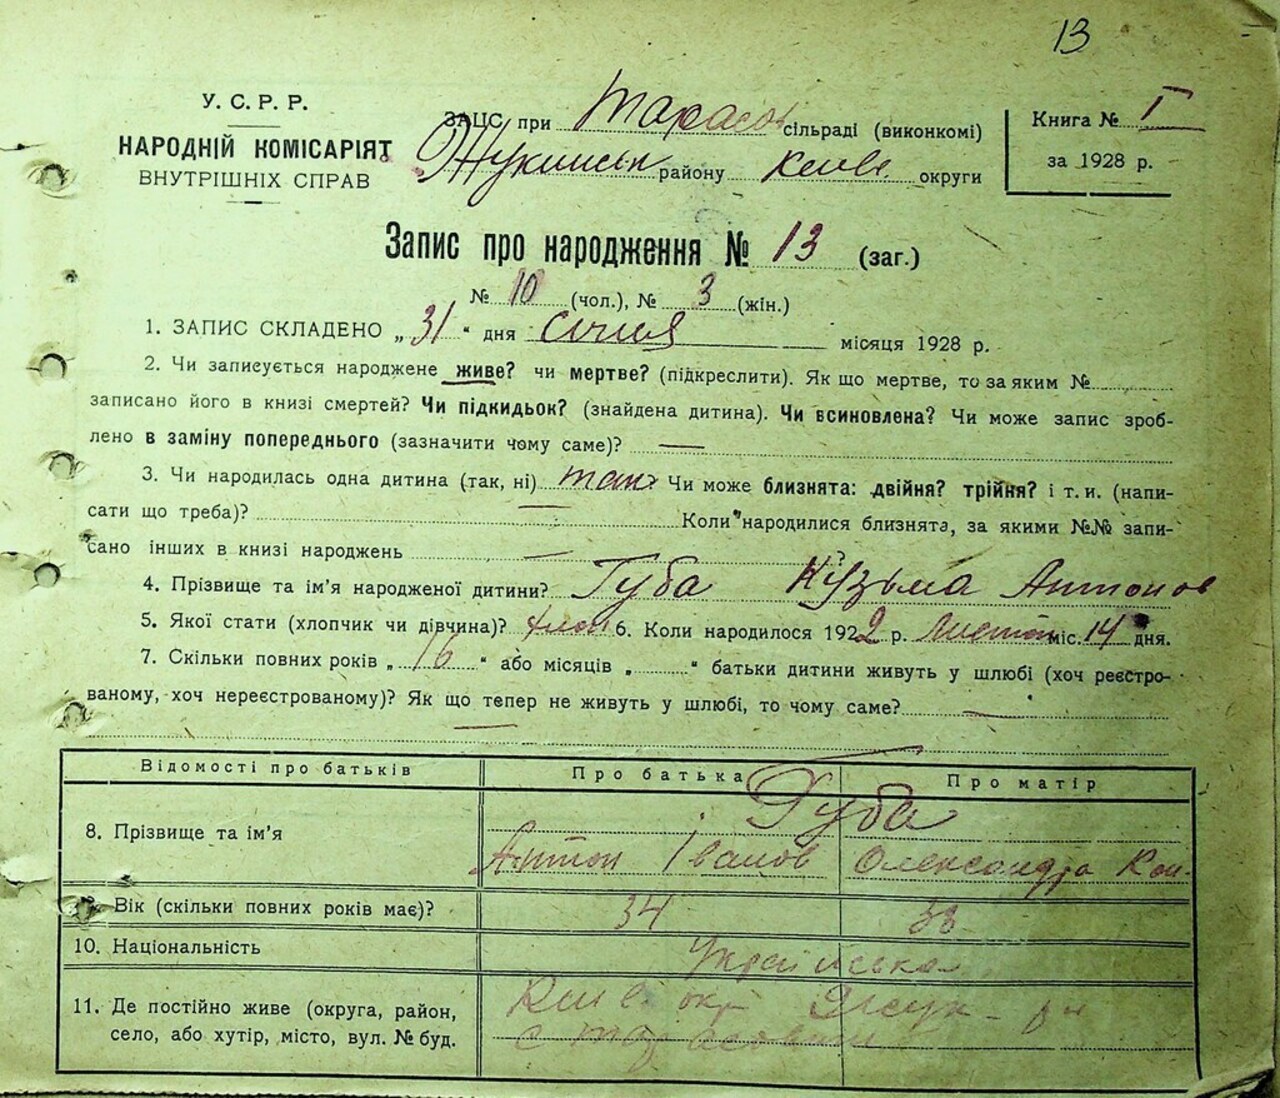 13
У. С. Р. Р.
НАРОДНІЙ КОМІСАРІЯТ
ВНУТРІШНІХ СПРАВ
ЗАЦС при Тарасов сільраді (виконкомі)
району Києв. округи
Книга № I
за 1928 р.
Запис про народження № 13 (заг.)
№ 10 (чол.), № 3 (жін.)
1. ЗАПИС СКЛАДЕНО „ 31 “ дня січня місяця 1928 р.
2. Чи записується народжене живе? чи мертве? (підкреслити). Як що мертве, то за яким №
записано його в книзі смертей? Чи підкидьок? (знайдена дитина). Чи всиновлена? Чи може запис зроб-
лено в заміну попереднього (зазначити чому саме)? —
3. Чи народилась одна дитина (так, ні) так Чи може близнята: двійня? трійня? і т. и. (напи-
сати що треба)? — Коли народилися близнята, за якими №№ запи-
сано інших в книзі народжень —
4. Прізвище та ім’я народженої дитини? Губа Кузьма Антонов
5. Якої стати (хлопчик чи дівчина)? хлоп 6. Коли народилося 1922 р. Листоп міс. 14 дня.
7. Скільки повних років „ 16 “ або місяців „ “ батьки дитини живуть у шлюбі (хоч реєстро-
ваному, хоч нереєстрованому)? Як що тепер не живуть у шлюбі, то чому саме? —
—
Відомості про батьків Про батька Про матір
Губа
8. Прізвище та ім’я Антон Іванов Олександра Кон.
9. Вік (скільки повних років має)? 34 38
10. Національність Українська
11. Де постійно живе (округа, район, Київ окр р-н
село, або хутір, місто, вул. № буд. с Тарасовки